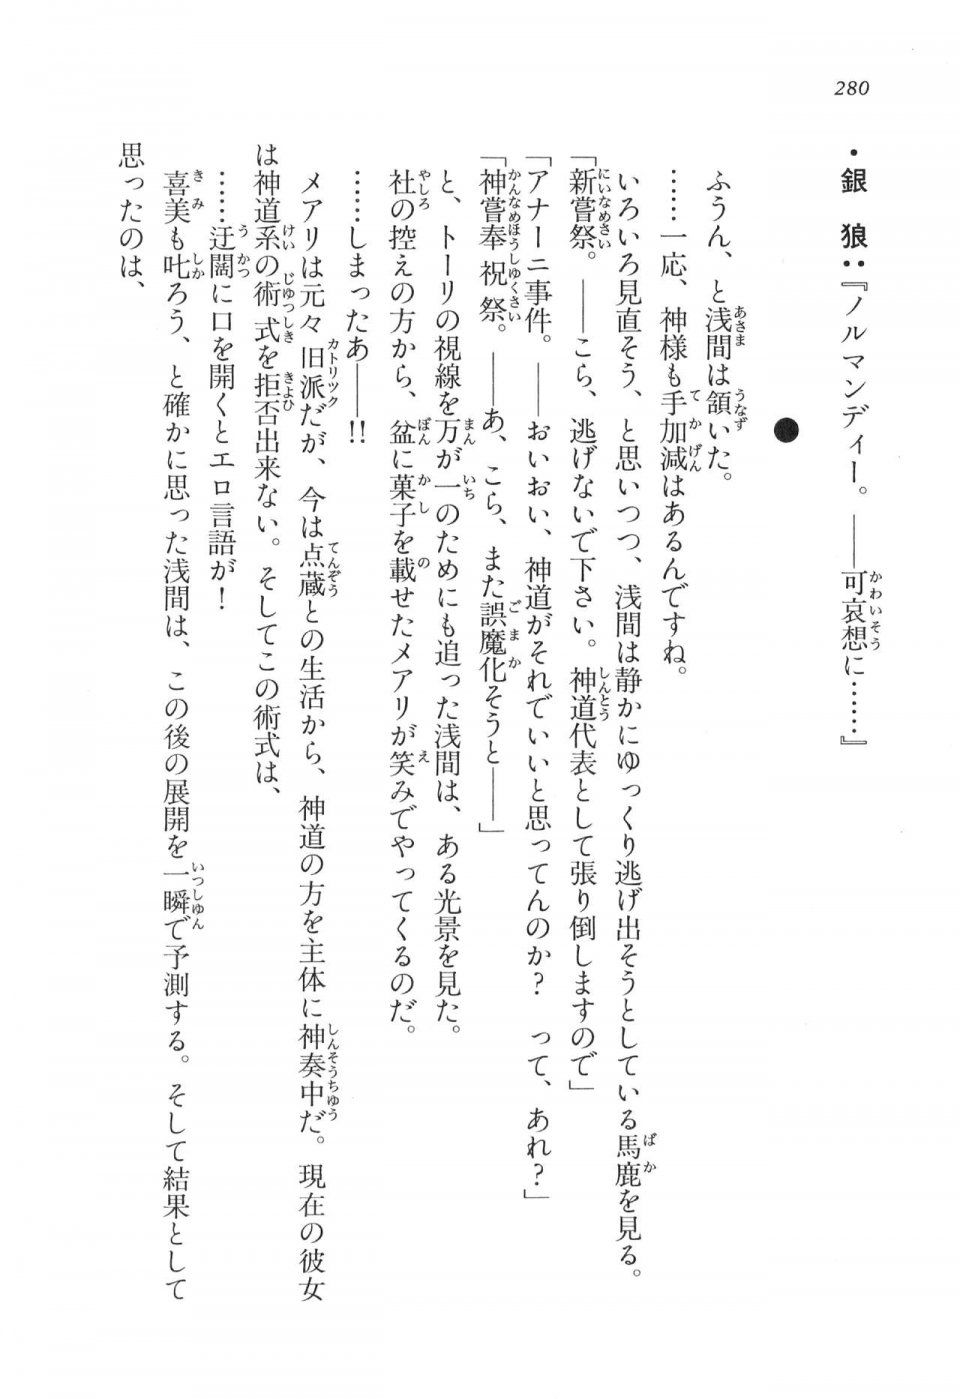 280
・銀　狼：『ノルマンディー。――可哀想に……』
●
ふうん、と浅間は頷いた。
……一応、神様も手加減はあるんですね。
いろいろ見直そう、と思いつつ、浅間は静かにゆっくり逃げ出そうとしている馬鹿を見る。
「新嘗祭。――こら、逃げないで下さい。神道代表として張り倒しますので」
「アナーニ事件。――おいおい、神道がそれでいいと思ってんのか？　って、あれ？」
「神嘗奉祝祭。――あ、こら、また誤魔化そうと――」
と、トーリの視線を万が一のためにも追った浅間は、ある光景を見た。
社の控えの方から、盆に菓子を載せたメアリが笑みでやってくるのだ。
……しまったあ――!!
メアリは元々旧派だが、今は点蔵との生活から、神道の方を主体に神奏中だ。現在の彼女
は神道系の術式を拒否出来ない。そしてこの術式は、
……迂闊に口を開くとエロ言語が！
喜美も叱ろう、と確かに思った浅間は、この後の展開を一瞬で予測する。そして結果として
思ったのは、